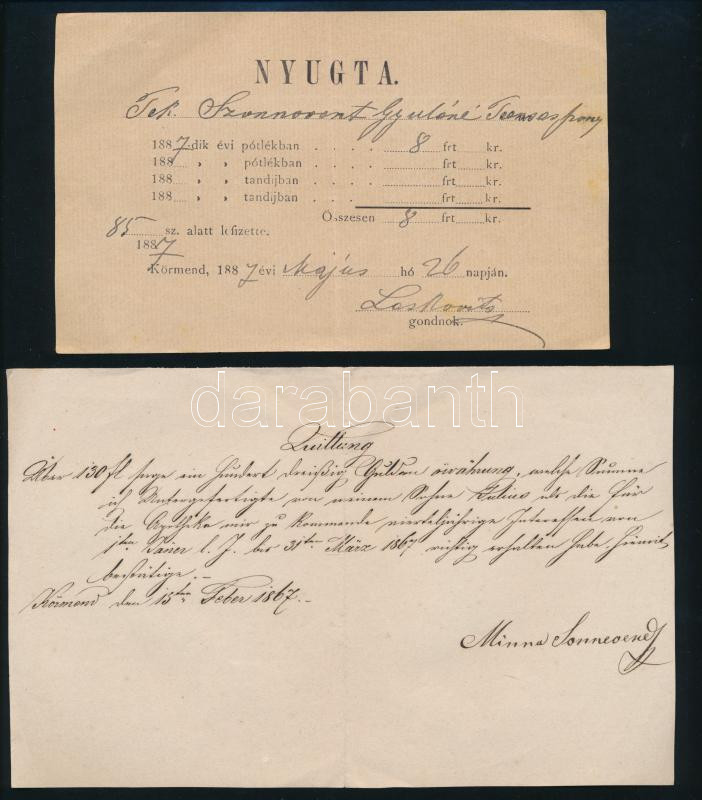 NYUGTA.
Tek.
1887dik évi pótlékban . . . . 8 frt kr.
188 „ „ pótlékban . . . . frt. kr.
188 „ „ tandíjban . . . . frt. kr.
188 „ „ tandíjban . . . . frt. kr.
Összesen 8 frt kr.
85 sz. alatt lefizette.
1887
Körmend, 1887 évi Május hó 26 napján.
Laskovits
gondnok.
darabanth
Quittung
Über 130 fl sage ein Hundert dreißig Gulden öwährung, welche Summe
ich Untergefertigte von meinem Sohne Julius als die für
die Apotheke mir zu kommende vierteljährige Interessen von
1ten Jäner l. J. bis 31ten März 1867 richtig erhalten habe. Hiemit
bestätige.-
Körmend den 15ten Feber 1867.-
Minna Sonnevend